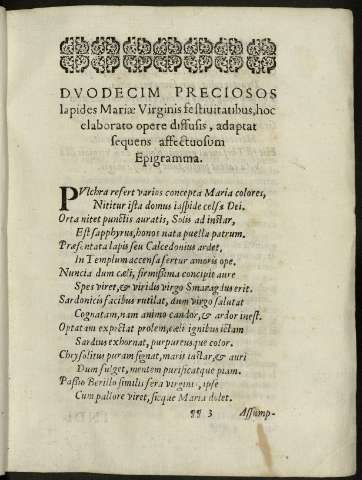 DVODECIM PRECIOSOS
lapides Mariæ Virginis festiuitatibus, hoc
elaborato opere diffusis, adaptat
sequens affectuosum
Epigramma.
PVlchra refert varios concepta Maria colores,
Nititur ista domus iaspide celsa Dei.
Orta nitet punctis auratis, Solis ad instar,
Est sapphyrus, honos nata puella patrum.
Præsentata lapis seu Calcedonius ardet,
In Templum accensa fertur amoris ope.
Nuncia dum cæli, firmissima concipit aure
Spes viret, & viridis virgo Smaragdus erit.
Sardonicis facibus rutilat, dum virgo salutat
Cognatam, nam animo candor, & ardor inest.
Optatam expectat prolem, cæli ignibus ictam
Sardius exhornat, purpureusque color.
Chrysolitus puram signat, maris instar, & auri
Dum fulget, mentem purificatque piam.
Passio Berillo similis fera virginis, ipse
Cum pallore viret, sicque Maria dolet.
¶¶ 3 Assump-